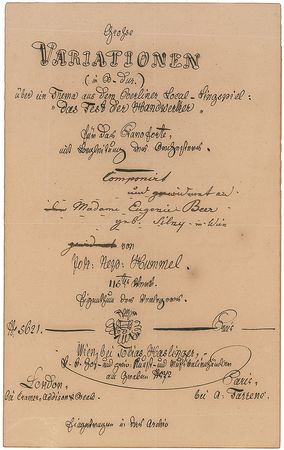 Große
VARIATIONEN
(in B-Dur.)
über ein Thema aus dem Berliner Local-Singspiel:
"Das Fest der Handwerker"
für das Pianoforte,
mit Begleitung des Orchesters.
Componirt
und gewidmet an
Madame Eugenie Beer
geb. Silny in Wien
von
Joh: Nep: Hummel.
115tes Werk.
Eigenthum des Verlegers.
No. 5621. Preis
Wien, bei Tobias Haslinger,
k. k. Hof- und priv. Kunst- und Musikalienhändler
am Graben No.
London, Paris,
bei Cramer, Addison & Beale. bei A: Farrenc.
Eingetragen in das Archiv